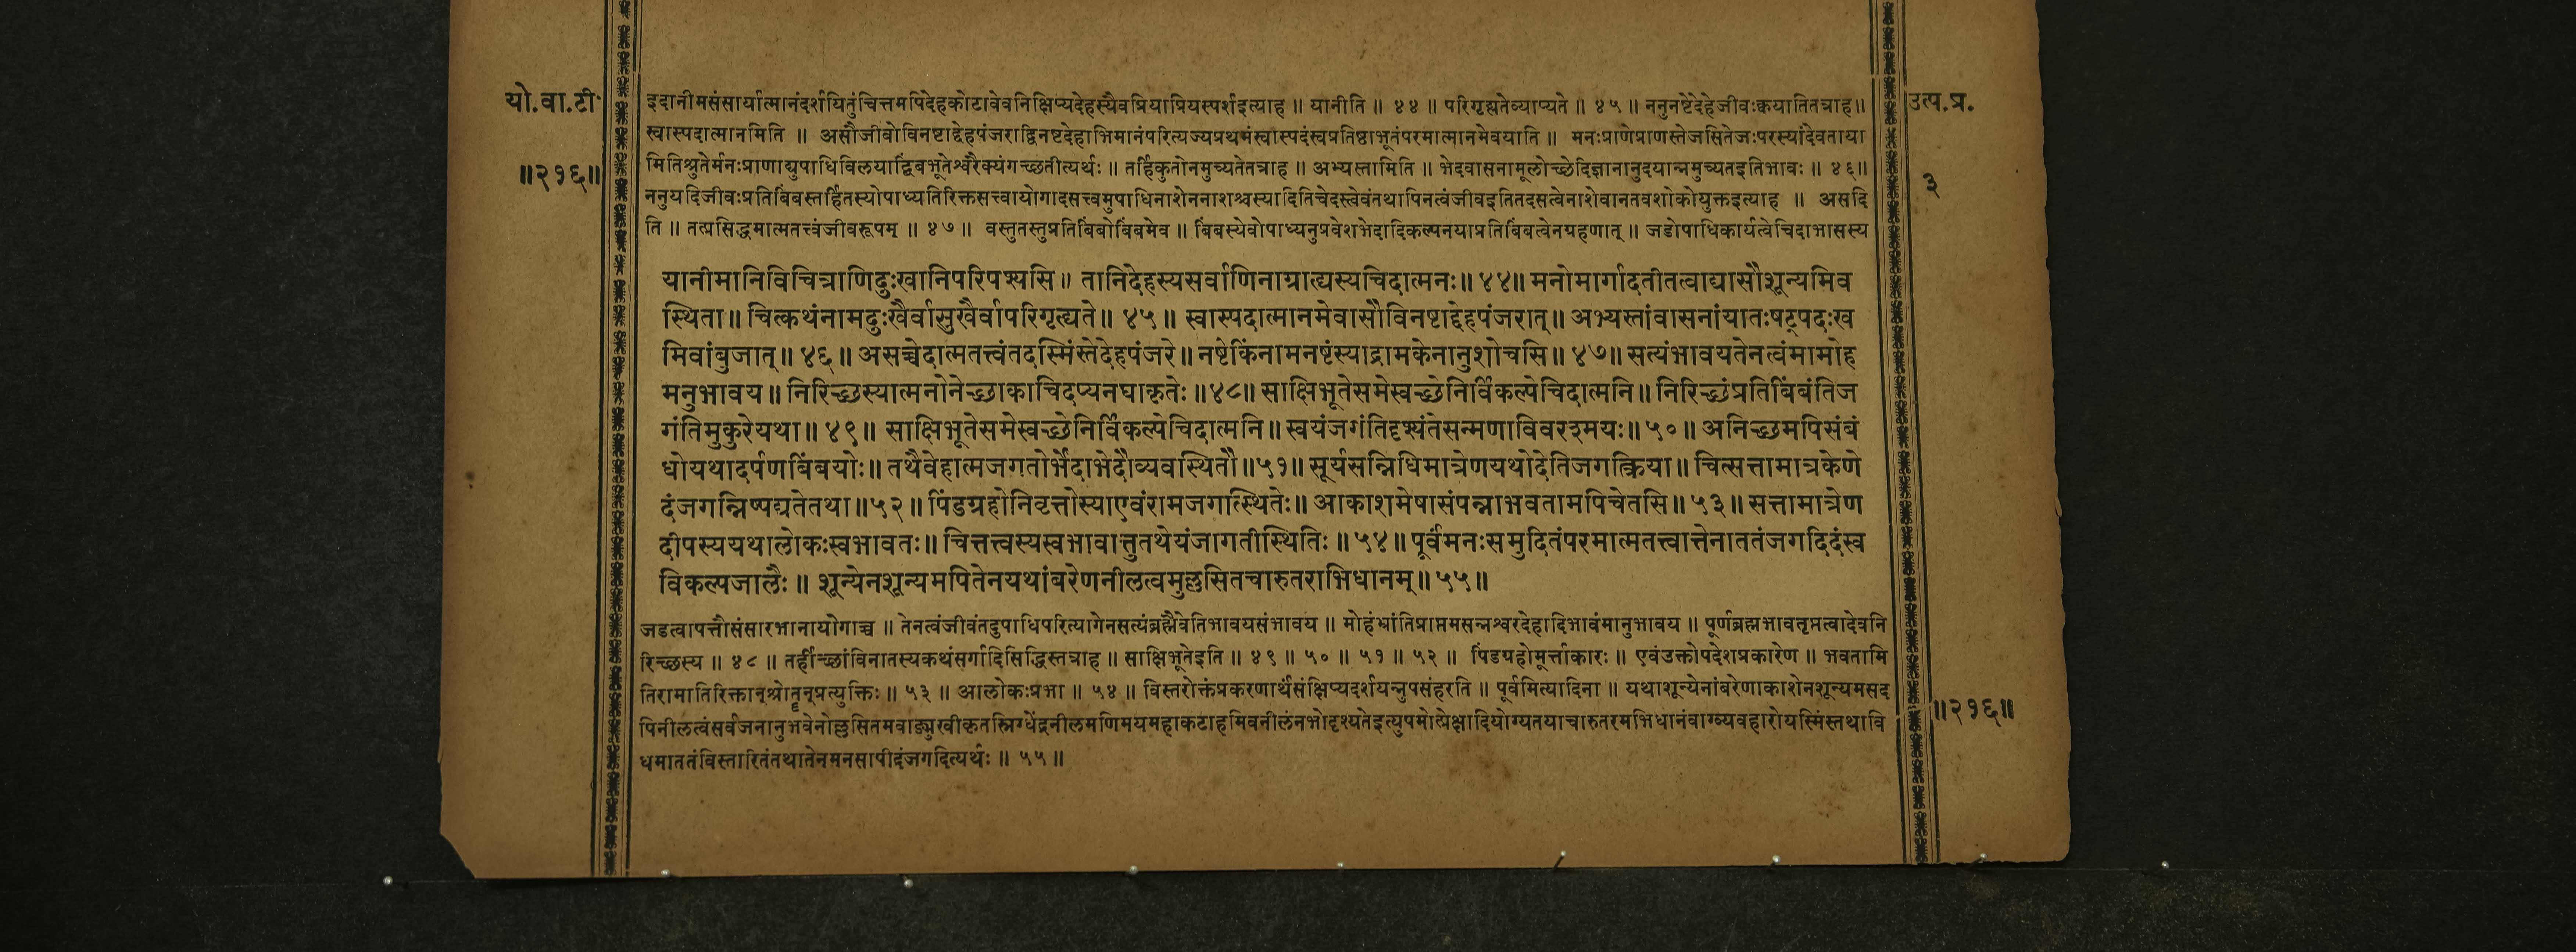 यो.वा.टी
॥२१६॥
उत्प.प्र.
३
इदानीमसंसार्यात्मानंदर्शयितुंचित्तमपिदेहकोटावेवनिक्षिप्यदेहस्यैवप्रियाप्रियस्पर्शइत्याह ॥ यानीति ॥ ४४ ॥ परिगृह्यतेव्याप्यते ॥ ४५ ॥ ननुनष्टेदेहेजीवःक्वयातितत्राह॥
स्वास्पदात्मानमिति ॥ असौजीवोविनष्टाद्देहपंजराद्विनष्टदेहाभिमानंपरित्यज्यप्रथमंस्वास्पदंस्वप्रतिष्ठाभूतंपरमात्मानमेवयाति ॥ मनःप्राणेप्राणस्तेजसितेजःपरस्यांदेवताया
मितिश्रुतेर्मनःप्राणाद्युपाधिविलयाद्बिंबभूतेश्वरैक्यंगच्छतीत्यर्थः ॥ तर्हिकुतोनमुच्यतेतत्राह ॥ अभ्यस्तामिति ॥ भेदवासनामूलोच्छेदिज्ञानानुदयान्नमुच्यतइतिभावः ॥ ४६॥
ननुयदिजीवःप्रतिबिंबस्तर्हितस्योपाध्यतिरिक्तसत्त्वायोगादसत्त्वमुपाधिनाशेननाशश्चस्यादितिचेदस्त्वेवंतथापिनत्वंजीवइतितदसत्वेनाशेवानतवशोकोयुक्तइत्याह ॥ असदि
ति ॥ तत्प्रसिद्धमात्मतत्त्वंजीवरूपम् ॥ ४७ ॥ वस्तुतस्तुप्रतिबिंबोबिंबमेव ॥ बिंबस्येवोपाध्यनुप्रवेशभेदादिकल्पनयाप्रतिबिंबत्वेनग्रहणात् ॥ जडोपाधिकार्यत्वेचिदाभासस्य
यानीमानिविचित्राणिदुःखानिपरिपश्यसि॥ तानिदेहस्यसर्वाणिनाग्राह्यस्यचिदात्मनः॥ ४४॥ मनोमार्गादतीतत्वाद्यासौशून्यमिव
स्थिता॥ चित्कथंनामदुःखैर्वासुखैर्वापरिगृह्यते॥ ४५॥ स्वास्पदात्मानमेवासौविनष्टाद्देहपंजरात्॥ अभ्यस्तांवासनांयातःषट्पदःख
मिवांबुजात्॥ ४६॥ असच्चेदात्मतत्त्वंतदस्मिंस्तेदेहपंजरे॥ नष्टेकिंनामनष्टंस्याद्रामकेनानुशोचसि॥ ४७॥ सत्यंभावयतेनत्वंमामोह
मनुभावय॥ निरिच्छस्यात्मनोनेच्छाकाचिदप्यनघाकृतेः॥४८॥ साक्षिभूतेसमेस्वच्छेनिर्विकल्पेचिदात्मनि॥ निरिच्छंप्रतिबिंबंतिज
गंतिमुकुरेयथा॥ ४९॥ साक्षिभूतेसमेस्वच्छेनिर्विकल्पेचिदात्मनि॥ स्वयंजगंतिदृश्यंतेसन्मणाविवरश्मयः॥ ५०॥ अनिच्छमपिसंबं
धोयथादर्पणबिंबयोः॥ तथैवेहात्मजगतोर्भेदाभेदौव्यवस्थितौ॥५१॥ सूर्यसन्निधिमात्रेणयथोदेतिजगत्क्रिया॥ चित्सत्तामात्रकेणे
दंजगन्निष्पद्यतेतथा॥५२॥ पिंडग्रहोनिवृत्तोस्याएवंरामजगत्स्थितेः॥ आकाशमेषासंपन्नाभवतामपिचेतसि॥ ५३॥ सत्तामात्रेण
दीपस्ययथालोकःस्वभावतः॥ चित्तत्त्वस्यस्वभावात्तुतथेयंजागतीस्थितिः॥ ५४॥ पूर्वंमनःसमुदितंपरमात्मतत्त्वात्तेनाततंजगदिदंस्व
विकल्पजालैः॥ शून्येनशून्यमपितेनयथांबरेणनीलत्वमुल्लसितचारुतराभिधानम्॥ ५५॥
जडत्वापत्तौसंसारभानायोगाच्च ॥ तेनत्वंजीवंतदुपाधिपरित्यागेनसत्यंब्रह्मैवेतिभावयसंभावय ॥ मोहंभ्रांतिप्राप्तमसन्नश्वरदेहादिभावंमानुभावय ॥ पूर्णब्रह्मभावतृप्तत्वादेवनि
रिच्छस्य ॥ ४८ ॥ तर्हीच्छांविनातस्यकथंसर्गादिसिद्धिस्तत्राह ॥ साक्षिभूतेइति ॥ ४९ ॥ ५० ॥ ५१ ॥ ५२ ॥ पिंडग्रहोमूर्त्ताकारः ॥ एवंउक्तोपदेशप्रकारेण ॥ भवतामि
तिरामातिरिक्तान्श्रोतॄन्प्रत्युक्तिः ॥ ५३ ॥ आलोकःप्रभा ॥ ५४ ॥ विस्तरोक्तंप्रकरणार्थंसंक्षिप्यदर्शयन्नुपसंहरति ॥ पूर्वमित्यादिना ॥ यथाशून्येनांबरेणाकाशेनशून्यमसद
पिनीलत्वंसर्वजनानुभवेनोल्लसितमवाङ्मुखीकृतस्निग्धेंद्रनीलमणिमयमहाकटाहमिवनीलंनभोदृश्यतेइत्युपमोत्प्रेक्षादियोग्यतयाचारुतरमभिधानंवाग्व्यवहारोयस्मिंस्तथावि
धमाततंविस्तारितंतथातेनमनसापीदंजगदित्यर्थः ॥ ५५ ॥
॥२१६॥